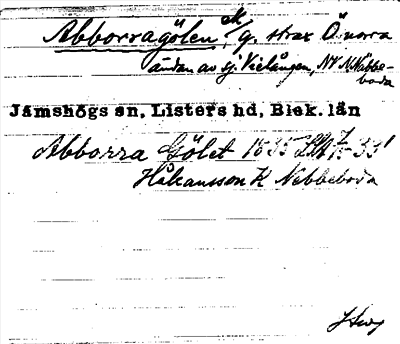 Abborragölen, g. strax Ö. norra
ändan av sj. Vielången, NV N. Näbbe-
boda
Jämshögs sn, Listers hd, Blek. län
Abborra Gölet 1835
Håkansson K Nebbeboda